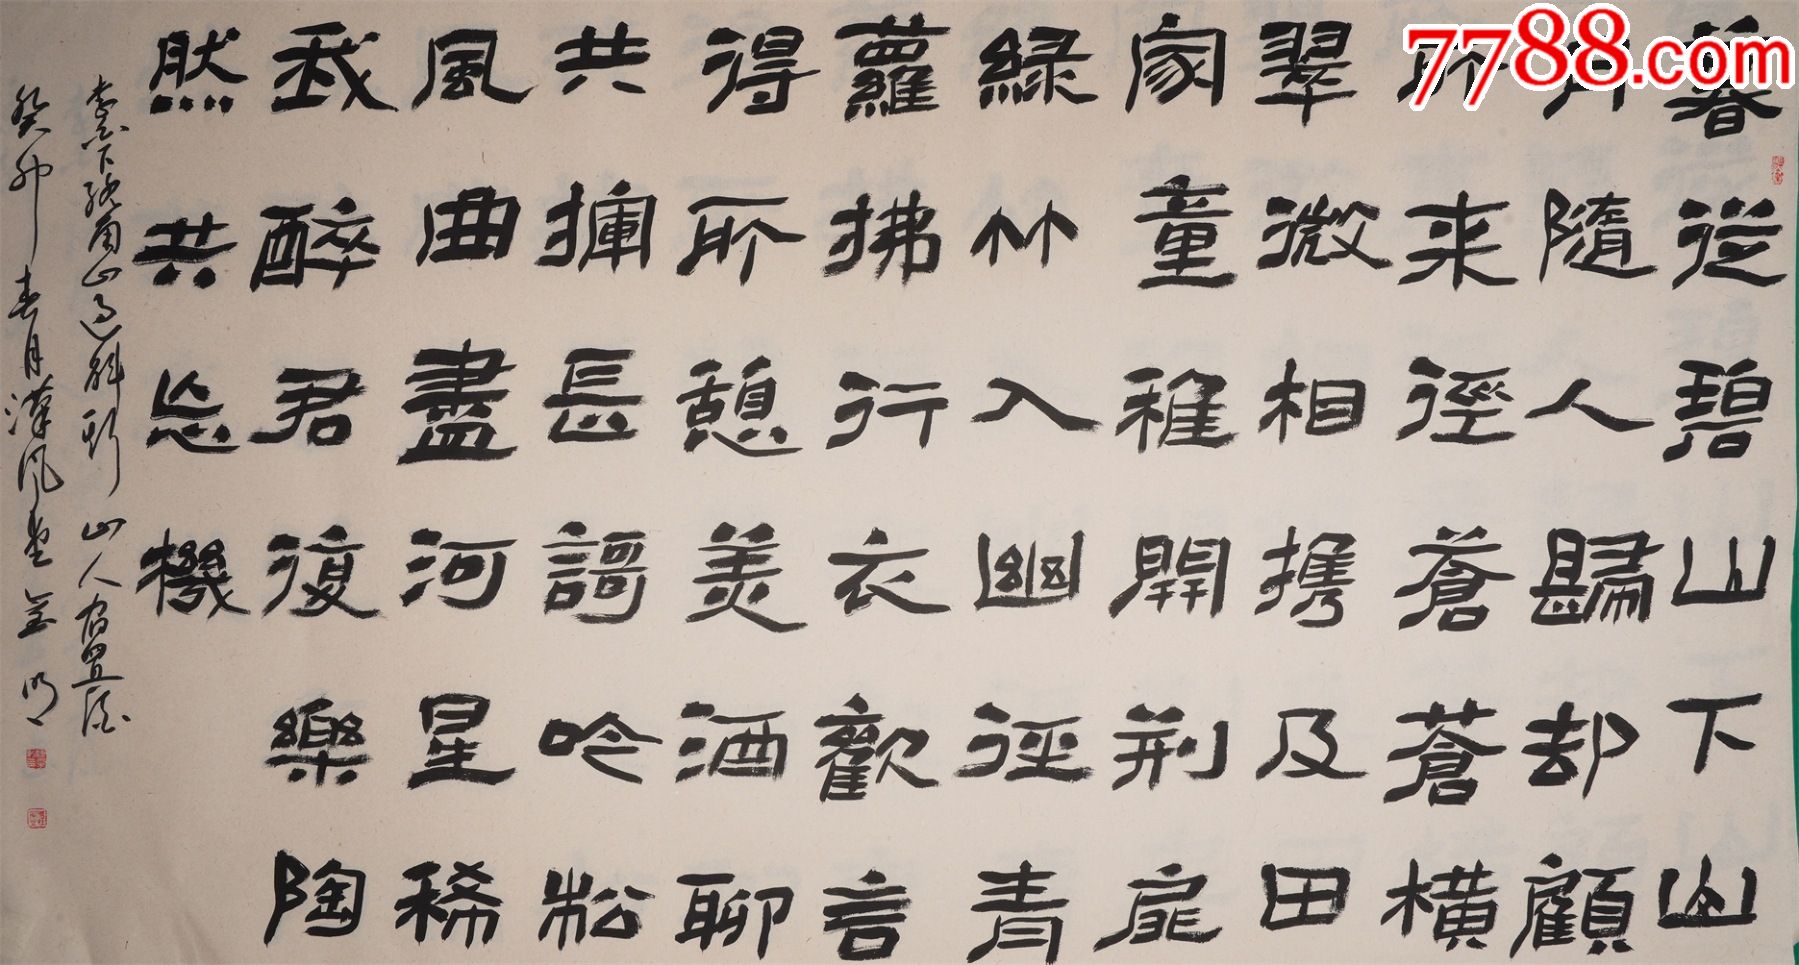 7788.com
暮從碧山下山
月隨人歸却顧
所来徑蒼蒼横
翠微相携及田
家童稚開荆扉
緑竹入幽徑青
蘿拂行衣歡言
得所憩美酒聊
共揮長謌吟松
風曲盡河星稀
我醉君復樂陶
然共忘機
李白下終南山過斛斯山人宿置酒
癸卯春月漢風堂金明